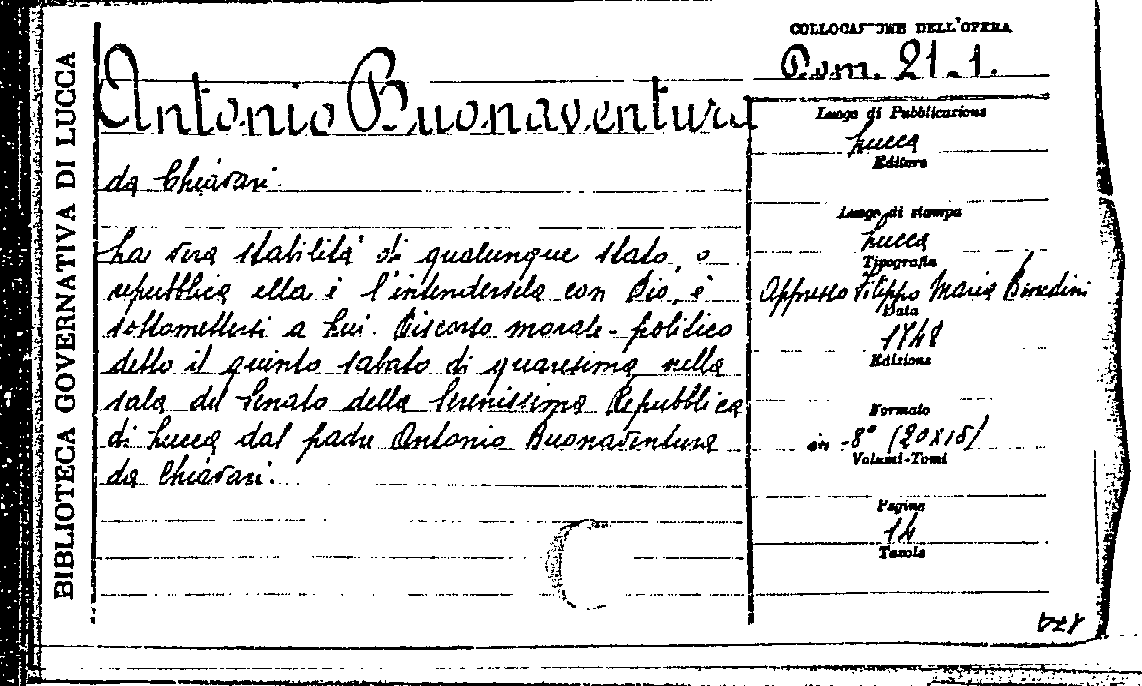 BIBLIOTECA GOVERNATIVA DI LUCCA
COLLOCAZIONE DELL'OPERA
Pom. 21.1.
Antonio Buonaventura
da Chiavari
La vera stabilità di qualunque stato, o
repubblica ella è l'intendersela con Dio, e
sottomettersi a Lui. Discorso morale-politico
detto il quinto sabato di quaresima nella
sala del Senato della Serenissima Repubblica
di Lucca dal padre Antonio Buonaventura
da Chiavari.
Luogo di Pubblicazione
Lucca
Editore
Luogo di stampa
Lucca
Tipografia
Appresso Filippo Maria Benedini
Data
1748
Edizione
Formato
in-8° (20x15)
Volumi-Tomi
Pagine
14
Tavole